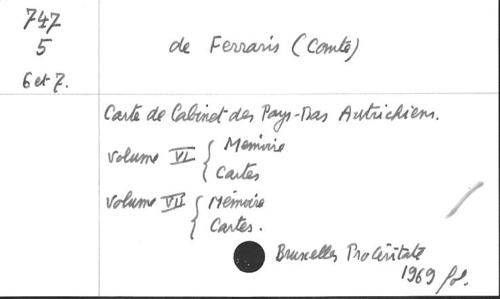 747
5
6 et 7.
de Ferraris (Comte)
Carte de Cabinet des Pays-Bas Autrichiens.
volume VI { Mémoire
Cartes
volume VII { Mémoire
Cartes.
Bruxelles Pro Civitate
1969 fol.